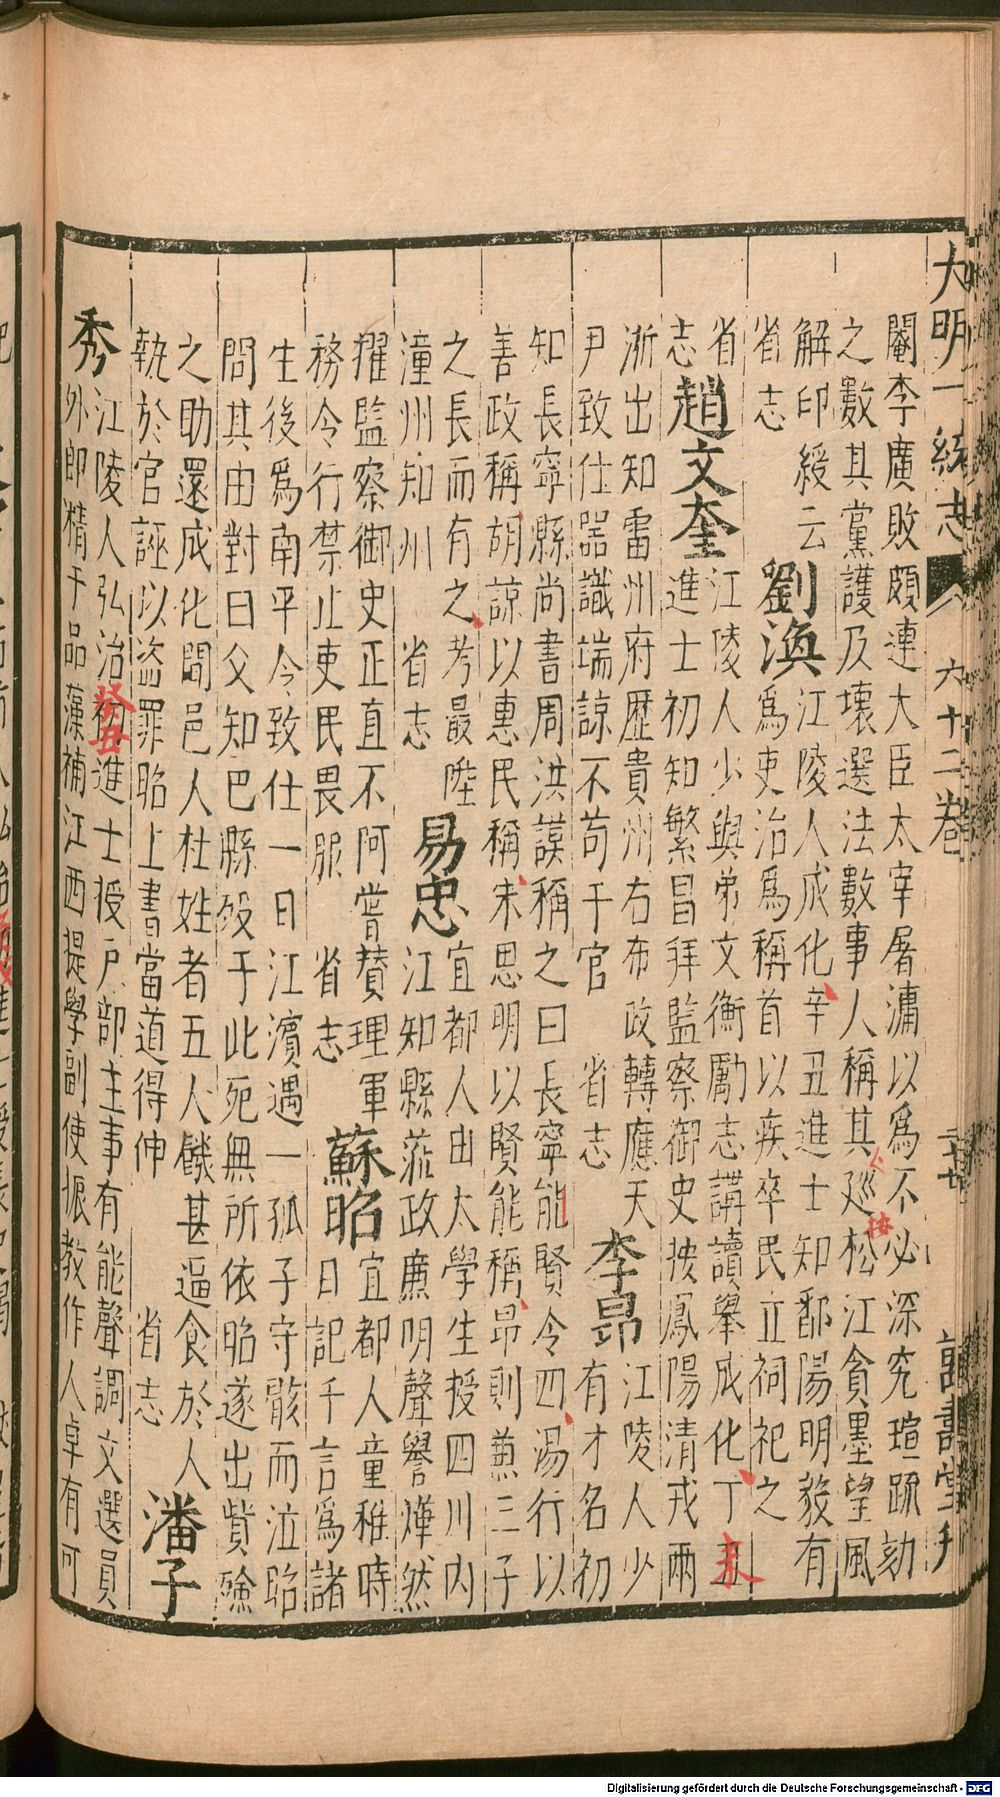 大明一統志 六十二卷 萬壽堂刋
闈李廣敗頗連大臣太宰屠滽以爲不必深究瑄䟽劾
之數其黨護及壞選法數事人稱其廵松江貪墨望風
解印綬云劉渙江陵人成化辛丑進士知鄱陽明敏有
省志爲吏治爲稱首以疾卒民立祠祀之
省江陵人少與弟文衡勵志講讀舉成化丁丑未
志趙文奎進士初知繁昌拜監察御史按鳳陽清戎兩
淅出知雷州府歷貴州右布政轉應天李昂江陵人少
尹致仕噐識端諒不苟于官 省志有才名初
知長寧縣尚書周洪謨稱之曰長寧能賢令四湯行以
善政稱胡諒以惠民稱朱思明以賢能稱昂則兼三子
之長而有之考最陞易忠宜都人由太學生授四川內
潼州知州 省志江知縣蒞政廉明聲譽燁然
擢監察御史正直不阿嘗賛理軍蘇昭宜都人童稚時
務令行禁止吏民畏服 省志日記千言爲諸
生後爲南平令致仕一日江濱遇一孤子守骸而泣昭
問其由對曰父知巴縣殁于此死無所依昭遂出貲殮
之助還成化間邑人杜姓者五人饑甚逼食於人潘子
執於官誣以盗罪昭上書當道得伸 省志
秀江陵人弘治癸丑進士授戶部主事有能聲調文選員
外郎精于品藻補江西提學副使振教作人卓有可
按
Digitalisierung gefördert durch die Deutsche Forschungsgemeinschaft - DFG